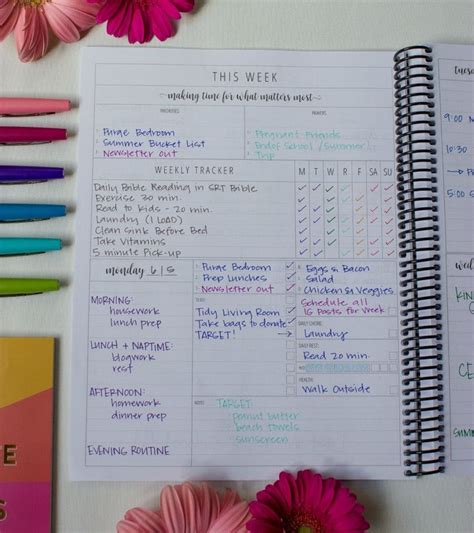 THIS WEEK
making time for what matters most
PRIORITIES
PRAYERS
Purge Bedroom
Summer Bucket List
Newsletter Out
Pregnant Friends
End of School / Summer
Trip
WEEKLY TRACKER
M T W R F SA SU
Daily Bible Reading in SRT Bible
Exercise 30 min.
Read to Kids - 20 min.
Laundry (1 LOAD)
Clean Sink Before Bed
Take Vitamins
5 minute Pick-up
monday 6/5
Purge Bedroom
Prep Lunches
Newsletter Out
Eggs & Bacon
Salad
Chicken & Veggies
MORNING:
housework
lunch prep
Tidy Living Room
Take bags to donate
TARGET!
Schedule all
16 Posts for Week
Laundry
LUNCH + NAPTIME:
blogwork
rest
Read 20 min.
HEALTH
Walk Outside
AFTERNOON:
homework
dinner prep
NOTES
TARGET:
peanut butter
beach towels
sunscreen
EVENING ROUTINE
tues
9:00
10:30
5:00
wed